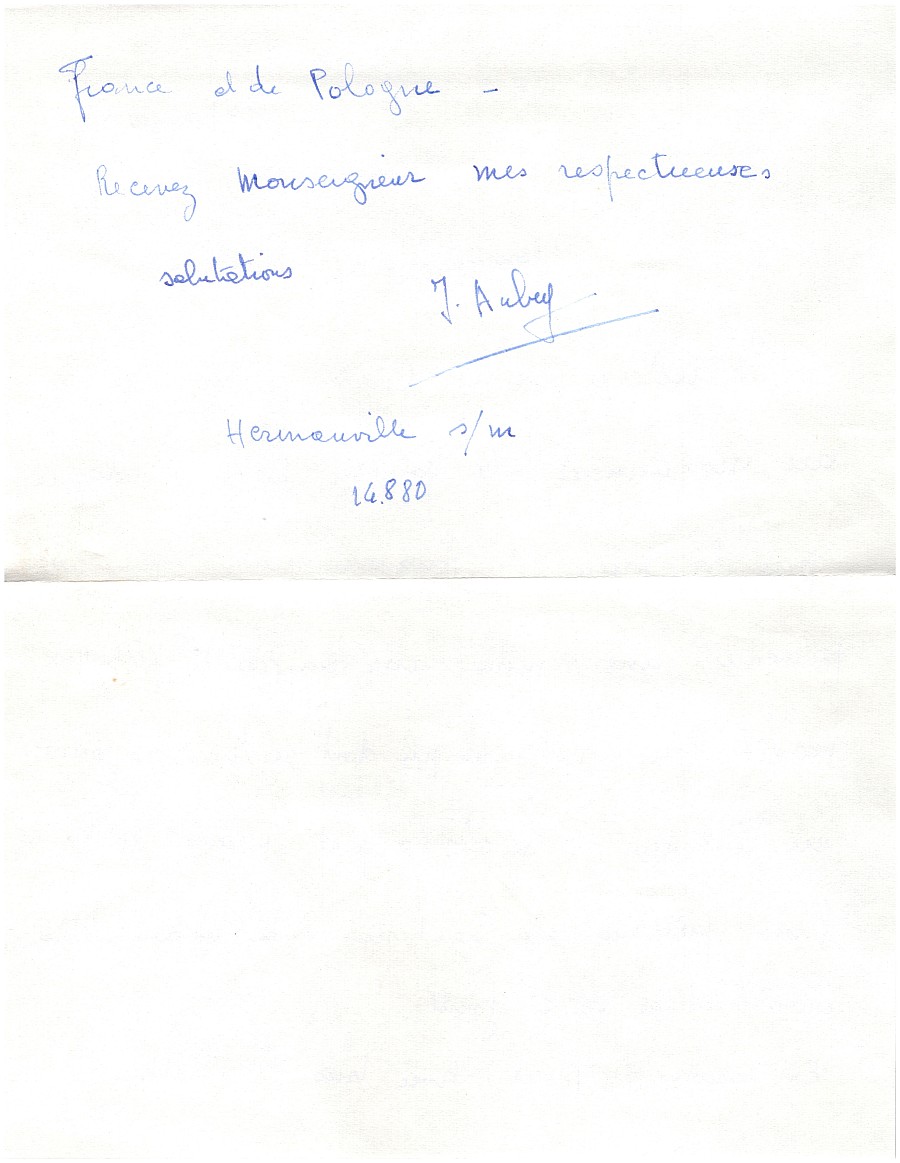 France et de Pologne -
Recevez Monseigneur mes respectueuses
salutations
J. Aubry
Hermanville s/m
14.880